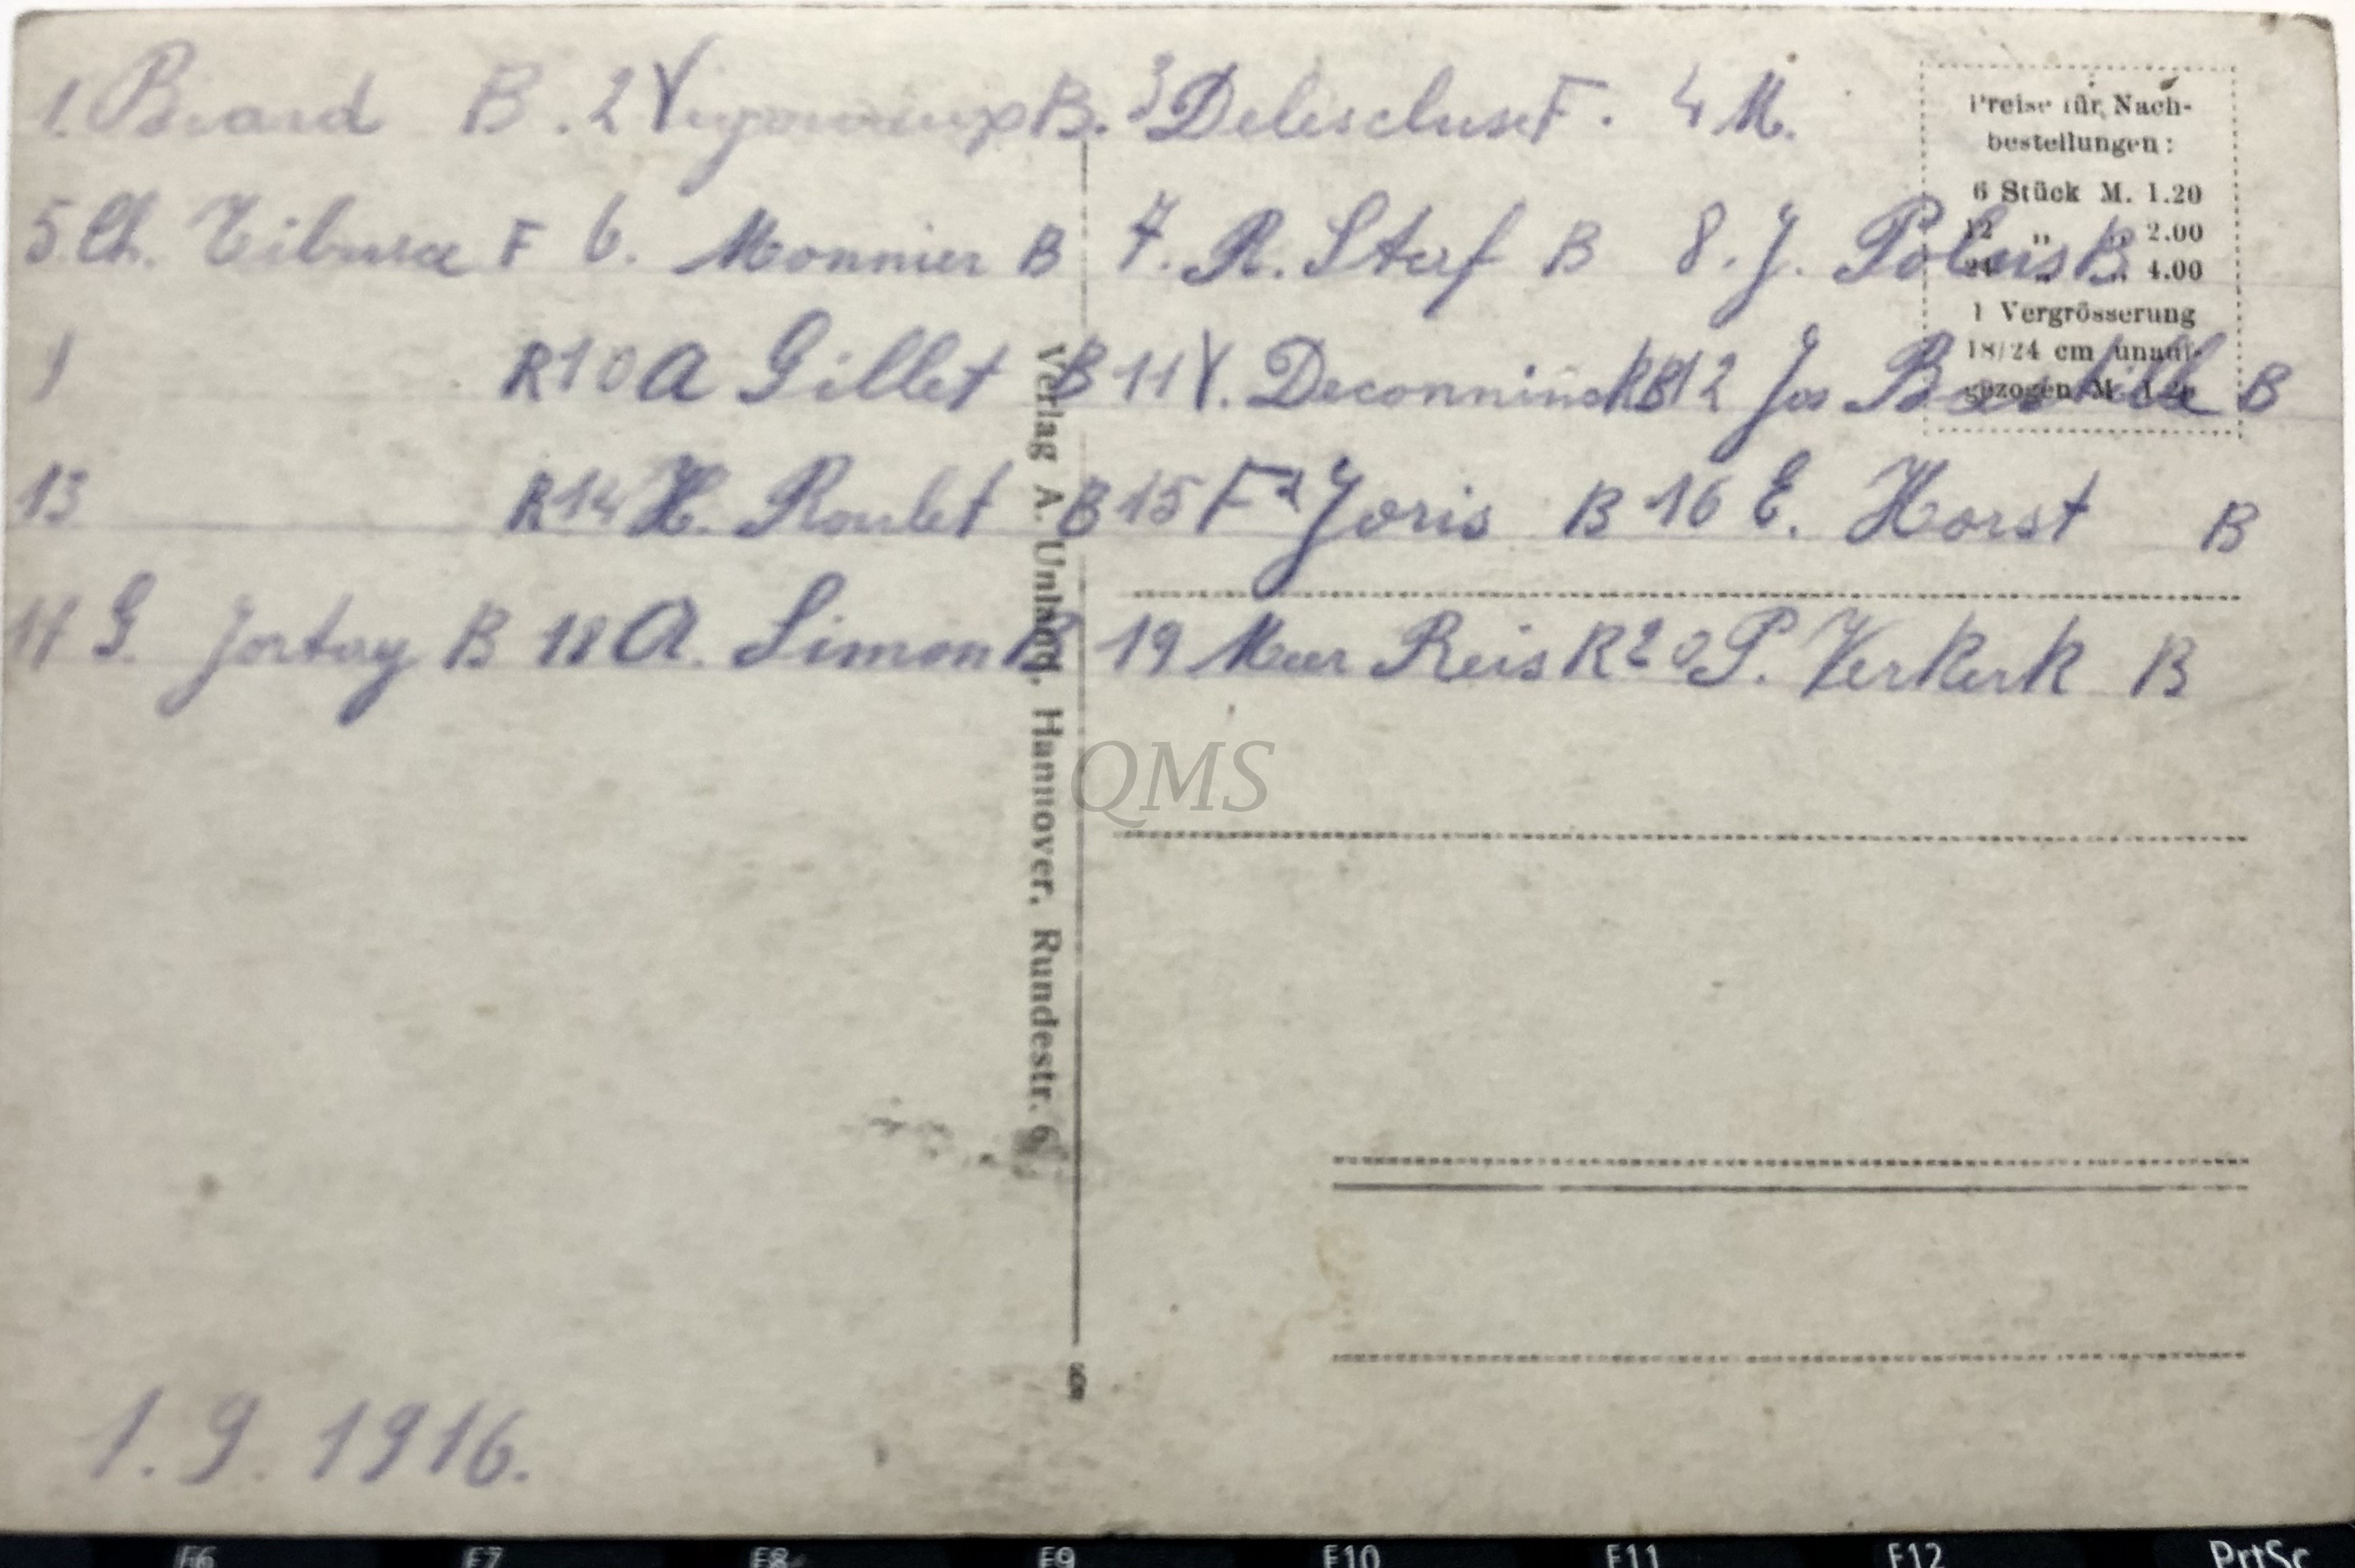 1. Biard B. 2 B. 3 Delescluse F. 4 M.
5. Ch. F 6. Monnier B 7. R. Staf B 8. J. Polus B
9 R 10 A Gillet B 11 V. Deconninck B 12 Jos B
13 R 14 H. Roulet B 15 Fd Joris B 16 E. Horst B
17 G. Jortay B 18 A. Simon B 19 Meer Reis R 20 P. Verkerk B
1.9.1916.
Preise für Nach-
bestellungen:
6 Stück M. 1.20
12 „ „ 2.00
24 „ „ 4.00
1 Vergrösserung
18/24 cm unauf-
gezogen M. 1.25
Verlag A. Unland, Hannover, Rundestr. 6
QMS
F6 F7 F8 F9 F10 F11 F12 PrtSc